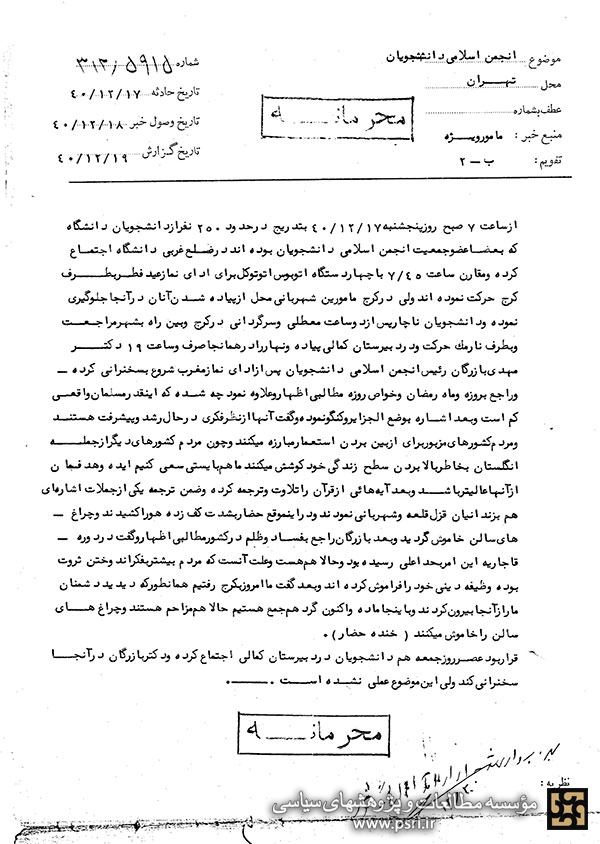 موضوع : انجمن اسلامی دانشجویان
محل : تهران
عطف بشماره :
منبع خبر : مامورویژه
تقویم : ب - ۲
شماره ۳۱۲/۵۹۱۵
تاریخ حادثه ۴۰/۱۲/۱۷
تاریخ وصول خبر ۴۰/۱۲/۱۸
تاریخ گزارش ۴۰/۱۲/۱۹
محرمانه
ازساعت ۷ صبح روزپنجشنبه ۴۰/۱۲/۱۷ بتدریج درحدود ۲۵۰ نفرازدانشجویان دانشگاه
که بعضاعضوجمعیت انجمن اسلامی دانشجویان بوده اند درضلع غربی دانشگاه اجتماع
کرده ومقارن ساعت ۷/۴۵ باچهاردستگاه اتوبوس اتوتوکل برای ادای نمازعید فطربطرف
کرج حرکت نموده اند ولی درکرج مامورین شهربانی محل ازپیاده شدن آنان درآنجا جلوگیری
نموده ودانشجویان ناچارپس ازدوساعت معطلی وسرگردانی درکرج وبین راه بشهرمراجعت
وبطرف نارمک حرکت ودردبیرستان کمالی پیاده ونهاررادرهمانجا صرف وساعت ۱۹ دکتر
مهدی بازرگان رئیس انجمن اسلامی دانشجویان پس ازادای نمازمغرب شروع بسخنرانی کرده -
وراجع بروزه وماه رمضان وخواص روزه مطالبی اظهاروعلاوه نمود چه شده که اینقدرمسلمان واقعی
کم است وبعد اشاره بوضع الجزایروکنگونموده وگفت آنها ازنظرفکری درحال رشد وپیشرفت هستند
ومردم کشورهای مزبوربرای ازبین بردن استعمارمبارزه میکنند وچون مردم کشورهای دیگرازجمله
انگلستان بخاطربالابردن سطح زندگی خود کوشش میکنند ماهم بایستی سعی کنیم ایده وهدفمان
ازآنهاعالیترباشد وبعد آیه هائی ازقرآن راتلاوت وترجمه کرده وضمن ترجمه یکی ازجملات اشاره ای
هم بزندانیان قزل قلعه وشهربانی نمودند ودراینموقع حضاربشدت کف زده هوراکشیدند وچراغ -
های سالن خاموش گردید وبعد بازرگان راجع بفساد وظلم درکشورمطالبی اظهاروگفت دردوره -
قاجاریه این امربحد اعلی رسیده بود وحالا هم هست وعلت آنست که مردم بیشتربفکراند وختن ثروت
بوده وظیفه دینی خود رافراموش کرده اند وبعد گفت ماامروزبکرج رفتیم همانطورکه دیدید دشمنان
ماراازآنجا بیرون کردند وباینجا آمده واکنون گرد هم جمع هستیم حالا هم مزاحم هستند وچراغ های
سالن راخاموش میکنند ( خنده حضار ) .
قراربود عصرروزجمعه هم دانشجویان دردبیرستان کمالی اجتماع کرده ودکتربازرگان درآنجا
سخنرانی کند ولی این موضوع عملی نشده است .
محرمانه
نظریه :
مؤسسه مطالعات و پژوهشهای سیاسی
www.psri.ir